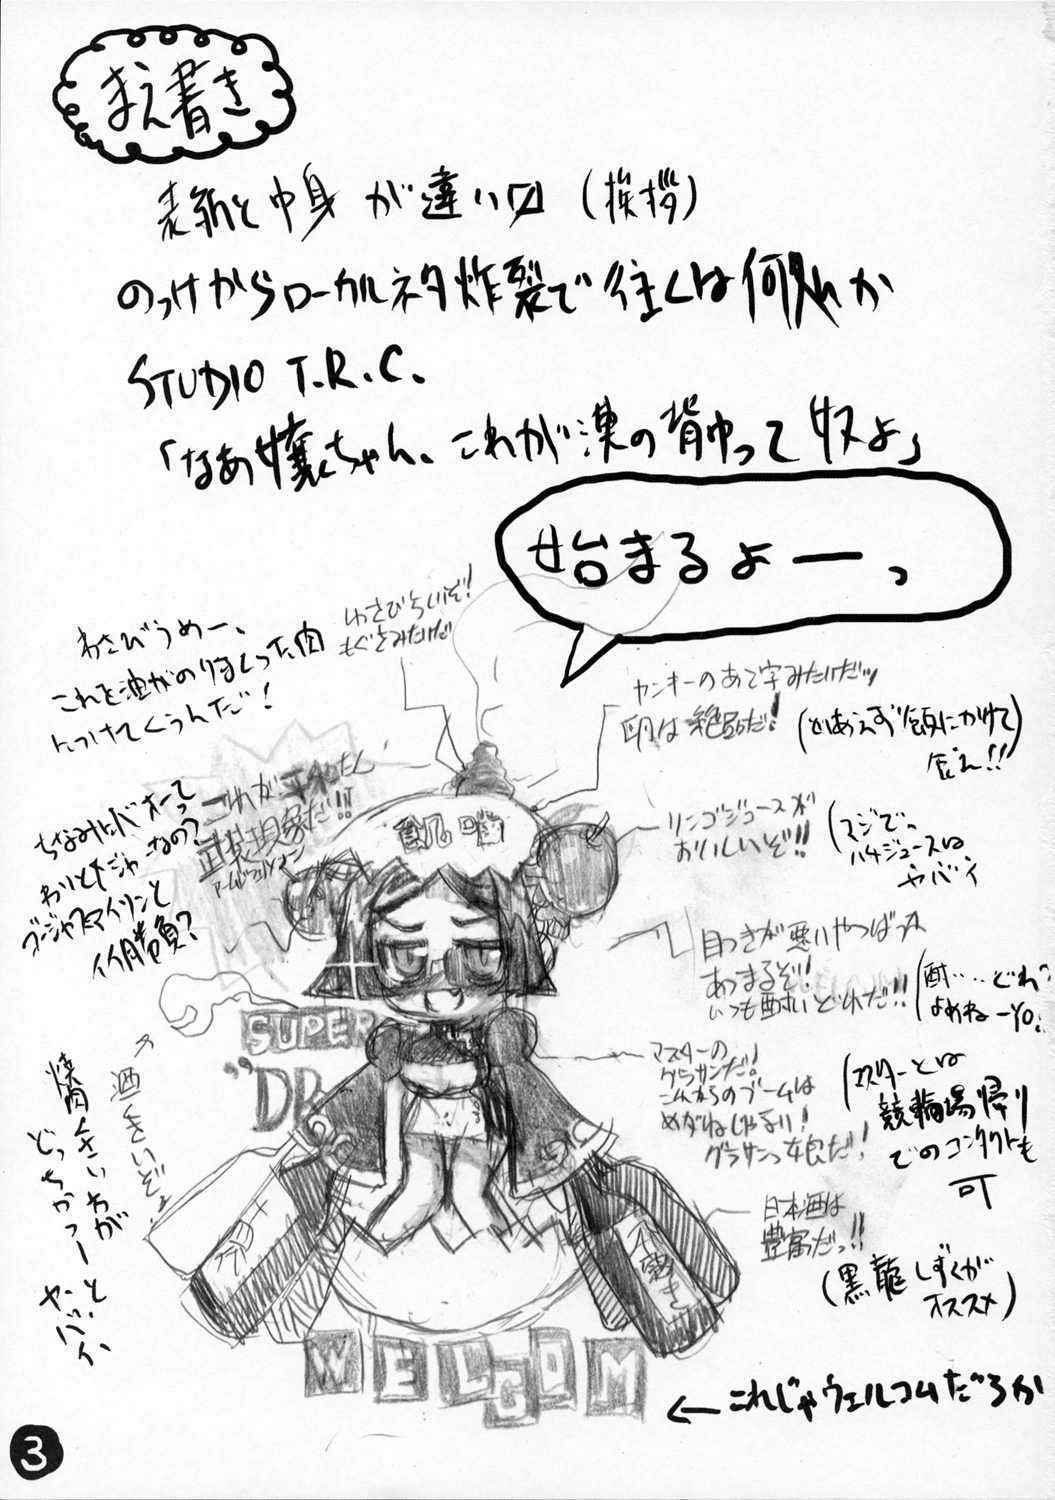 まえ書き
表紙と中身が違い〼(挨拶)
のっけからローカルネタ炸裂で往くは何処か
STUDIO T.R.C.
「なあ嬢ちゃん、これが漢の背中って奴よ」
始まるよーっ
わさびうめー、
これを油がのりまくった肉
につけてくうんだ!
わさびらいぞ!
もぐさみたいだ
ヤンキーのあて字みたいだッ
卵は絶品だ!
(とりあえず飯にかけて
これが平和
武装現象だ!!
リンゴジュースが
おいしいぞ!!
ハチジュースは
ヤバイ
ちなみに
イイ勝負?
目つきが悪いやつばっか
あつまるぞ!
いつも酔いどれだ!!
SUPER
"DR
マスターの
グラサンだ!
これからのブームは
めがねじゃない!
グラサンっ娘だ!
(マスターとは
競輪場帰り
でのコンタクトも
可
酒くさいぞ
焼肉くさいわが
どっちかっつーと
ヤバイ
日本酒は
豊富だっ!!
(黒龍しずくが
オススメ)
WELCOM
←これじゃウェルコムだろが
3